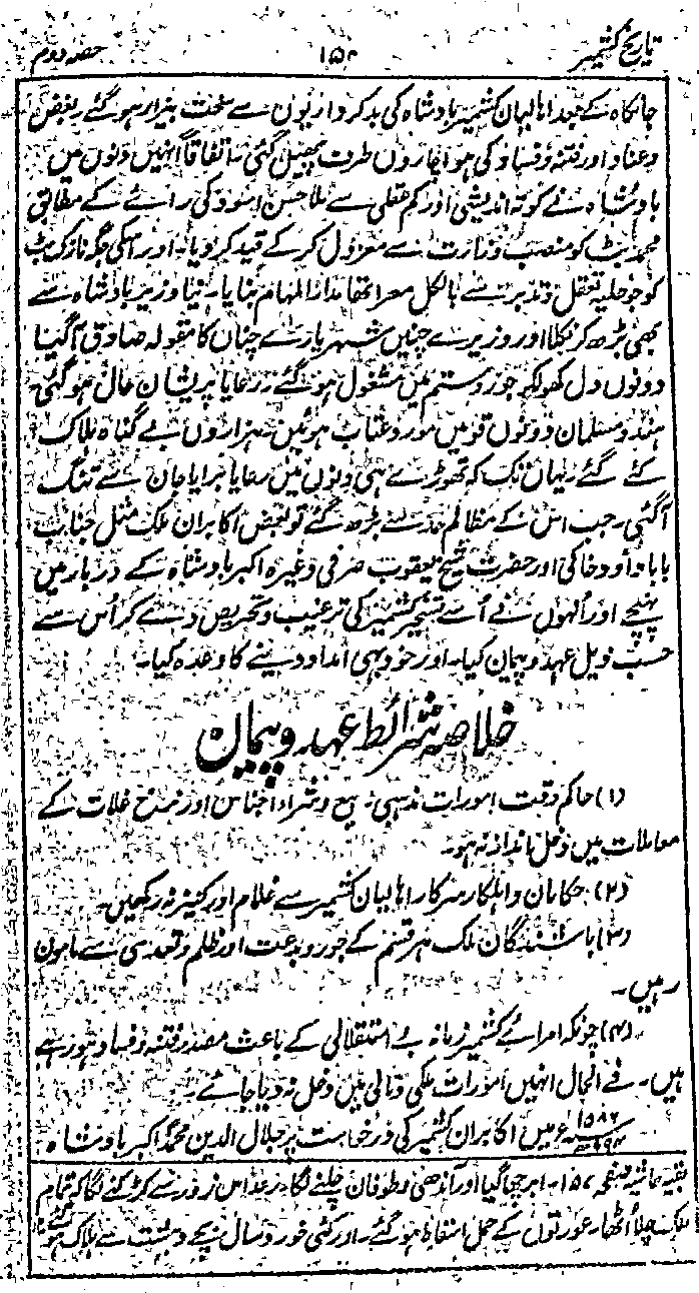 تاریخ کشمیر ۱۵۸ حصہ دوم
جانکاہ کے بعد اہالیان کشمیر بادشاہ کی بدکرداریوں سے سخت بیزار ہو گئے۔ بغض
و عناد اور فتنہ و فساد کی ہوا چاروں طرف پھیل گئی۔ اتفاقاً انہیں دنوں میں
بادشاہ نے کوتہ اندیشی اور کم عقلی سے ملا حسن اسود کی رائے کے مطابق
محمد بٹ کو منصب وزارت سے معزول کر کے قید کر دیا۔ اور اسکی جگہ نازک بٹ
کو جو حلیہ تعقل و تدبر سے بالکل معرا تھا مدار المہام بنایا۔ نیا وزیر بادشاہ سے
بھی بڑھ کر نکلا اور وزیرے چنیں شہریارے چناں کا مقولہ صادق آ گیا
دونوں دل کھولکر جور و ستم میں مشغول ہو گئے۔ رعایا پریشان حال ہو گئی
ہندو مسلمان دونوں قومیں مورد عتاب ہوئیں۔ ہزاروں بے گناہ ہلاک
کئے گئے۔ یہاں تک کہ تھوڑے ہی دنوں میں رعایا برایا جان سے تنگ
آ گئی۔ جب اس کے مظالم حد سے بڑھ گئے تو بعض اکابران ملک مثل جناب
بابا داؤد خاکی اور حضرت شیخ یعقوب صرفی وغیرہ اکبر بادشاہ کے دربار میں
پہنچے اور انہوں نے اسے تسخیر کشمیر کی ترغیب و تحریص دے کر اُس سے
حسب ذیل عہد و پیمان کیا۔ اور خود بھی امداد دینے کا وعدہ کیا۔
خلاصہ شرائط عہد و پیمان
(۱) حاکم وقت امورات مذہبی۔ بیع و شراء اجناس اور نرخ غلات کے
معاملات میں دخل انداز نہ ہو۔
(۲) حکامان و اہلکار سرکار اہالیان کشمیر سے غلام اور کنیز نہ رکھیں۔
(۳) باشندگان ملک ہر قسم کے جور و بدعت اور ظلم و تعدی سے مامون
رہیں۔
(۴) چونکہ امرائے کشمیر زمانہ بے استقلالی کے باعث مصدر فتنہ و فساد ہو رہے
ہیں۔ فے الحال انہیں امورات ملکی و مالی میں دخل نہ دیا جائے۔
۱۵۸۶ء ۹۹۴ھ میں اکابران کشمیر کی درخواست پر جلال الدین محمد اکبر بادشاہ
بقیہ حاشیہ صفحہ ۱۵۷۔ ابر چھا گیا اور آندھی و طوفان چلنے لگا۔ رعد اس زور سے کڑکنے لگا کہ تمام
ملک چلا اُٹھا۔ عورتوں کے حمل اسقاط ہو گئے۔ اور کئی خورد سال بچے دہشت سے ہلاک ہو گئے